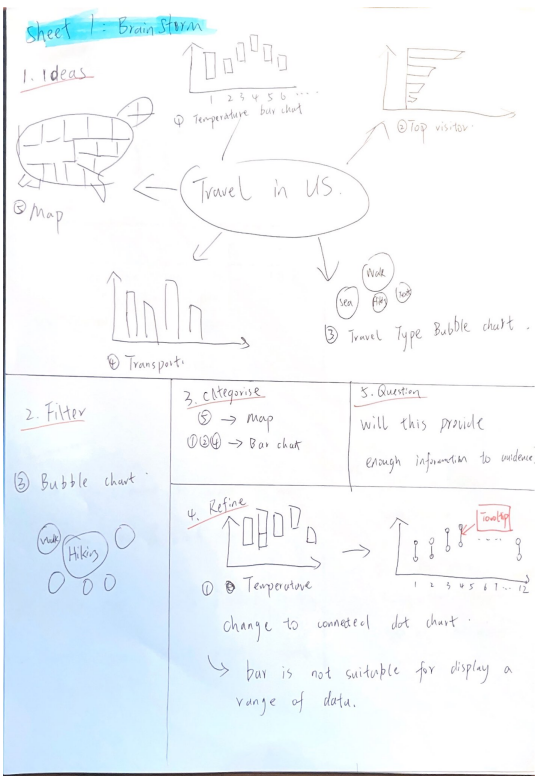 Sheet 1: BrainStorm
1. Ideas
1 2 3 4 5 6 ....
① Temperature bar chart
② Top visitor.
Travel in US.
⑤ Map
Walk
sea
③ Travel Type Bubble chart.
④ Transport.
2. Filter
③ Bubble chart.
Walk
Hiking
3. Categorise
⑤ → Map
①②④ → Bar chat
5. Question
will this provide
enough information to audience
4. Refine
Tooltip
1 2 3 4 5 6 7 .. 12
① Temperature
change to connected dot chart.
↳ bar is not suitable for display a
range of data.